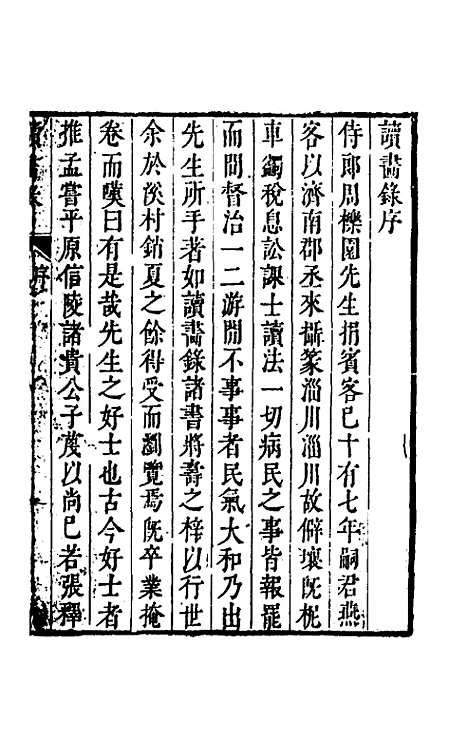 讀畵錄序
侍郎周櫟園先生捐賓客已十有七年嗣君燕
客以濟南郡丞來攝篆淄川淄川故僻壤旣梔
車蠲稅息訟課士讀法一切病民之事皆報罷
而間督治一二游閒不事事者民氣大和乃出
先生所手著如讀畵錄諸書將壽之梓以行世
余於溪村銷夏之餘得受而瀏覽焉旣卒業掩
卷而嘆曰有是哉先生之好士也古今好士者
推孟嘗平原信陵諸貴公子蔑以尚已若張釋
序